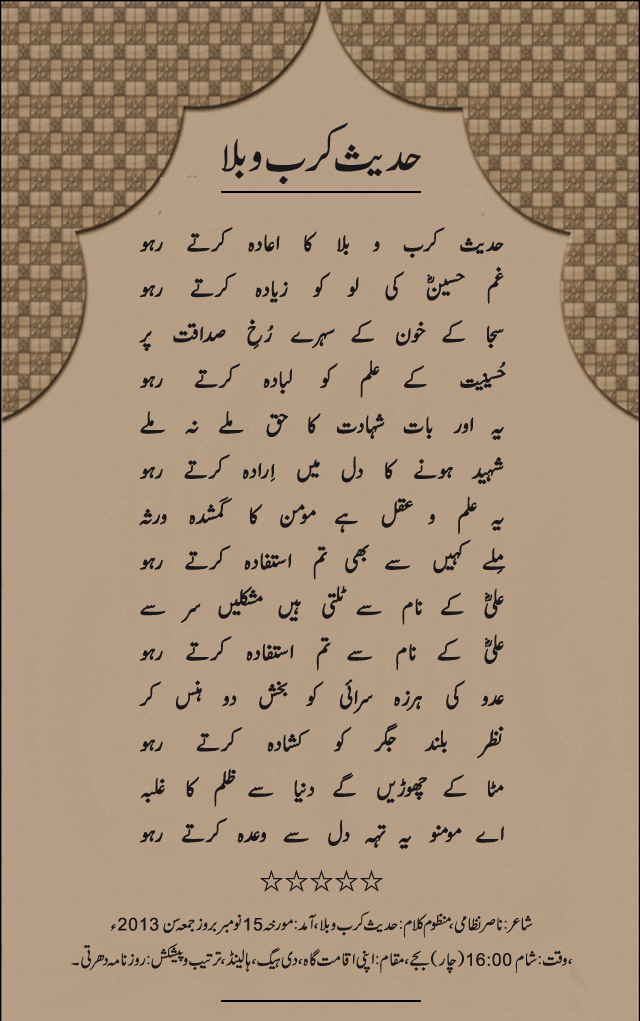 حدیث کرب و بلا
حدیث کرب و بلا کا اعادہ کرتے رہو
غم حسینؓ کی لو کو زیادہ کرتے رہو
سجا کے خون کے سہرے رُخِ صداقت پر
حُسینیت کے علم کو لبادہ کرتے رہو
یہ اور بات شہادت کا حق ملے نہ ملے
شہید ہونے کا دل میں اِرادہ کرتے رہو
یہ علم و عقل ہے مومن کا گمشدہ ورثہ
مِلے کہیں سے بھی تم استفادہ کرتے رہو
علیؓ کے نام سے ٹلتی ہیں مشکلیں سر سے
علیؓ کے نام سے تم استفادہ کرتے رہو
عدو کی ہرزہ سرائی کو بخش دو ہنس کر
نظر بلند جگر کو کشادہ کرتے رہو
مٹا کے چھوڑیں گے دنیا سے ظلم کا غلبہ
اے مومنو یہ تہہ دل سے وعدہ کرتے رہو
☆☆☆☆☆
شاعر:ناصر نظامی،منظوم کلام:حدیث کرب و بلا،آمد:مورخہ15نومبر بروز جمعہ سن 2013ء
،وقت:شام 16:00(چار) بجے،مقام:اپنی اقامت گاہ،دی ہیگ،ہالینڈ،ترتیب و پیشکش:روزنامہ دھرتی۔